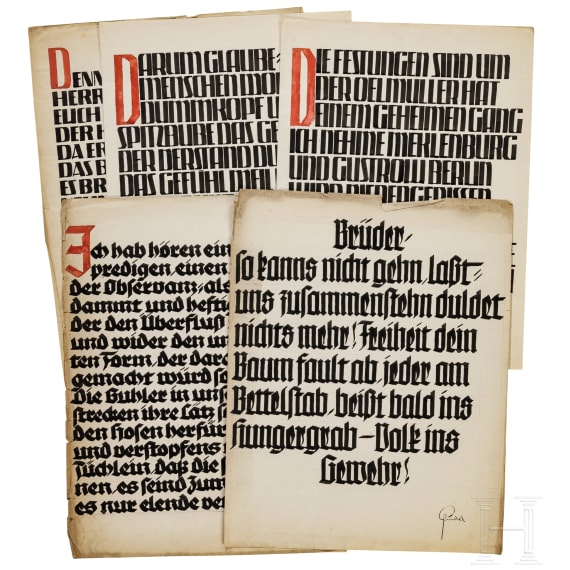 DENN
HERR
EUCH
DER H
DA ER
DAS B
ES BR
DARUM GLAUBE=
MENSCHEN DO
DUMMKOPF U
SPITZBUBE DAS GE
DER VERSTAND DU
DAS GEFÜHL MEH
DIE FESTUNGEN SIND UM
DER OELMÜLLER HAT
DEINEM GEHEIMEN GANG
ICH NEHME MEKLENBURG
UND GÜSTROW BERLIN
WIRD NIEDERGERISSEN
Ich hab hören ein
predigen einen
der Observanz, als
dammt und heftig
der den Überfluß
und wider den un
ten Form, der dar
gemacht würd so
Die Buhler in uns
strecken ihre Lätz
den Hosen herfür
und verstopfens
Tüchlein, daß die
nen, es seind Zum
es nur elende ver
Brüder,
so kanns nicht gehn, laßt=
uns zusammenstehn duldet
nichts mehr! Freiheit dein
Baum fault ab, jeder am
Bettelstab, beißt bald ins
Hungergrab–Volk ins
Gewehr!
H